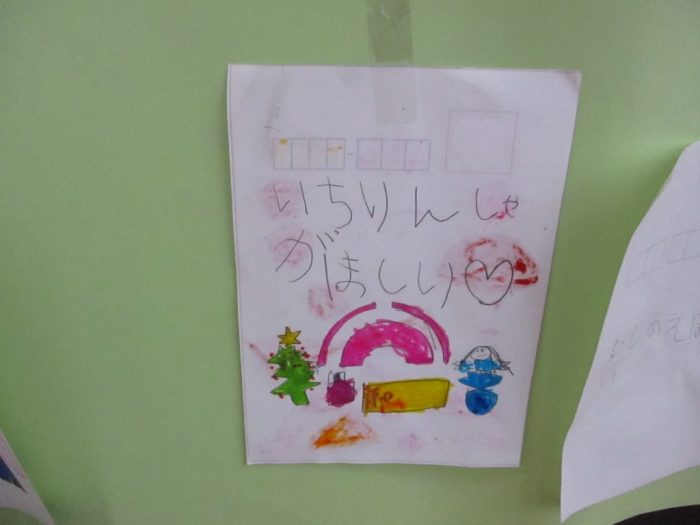 いちりんしゃ
がほしい♡